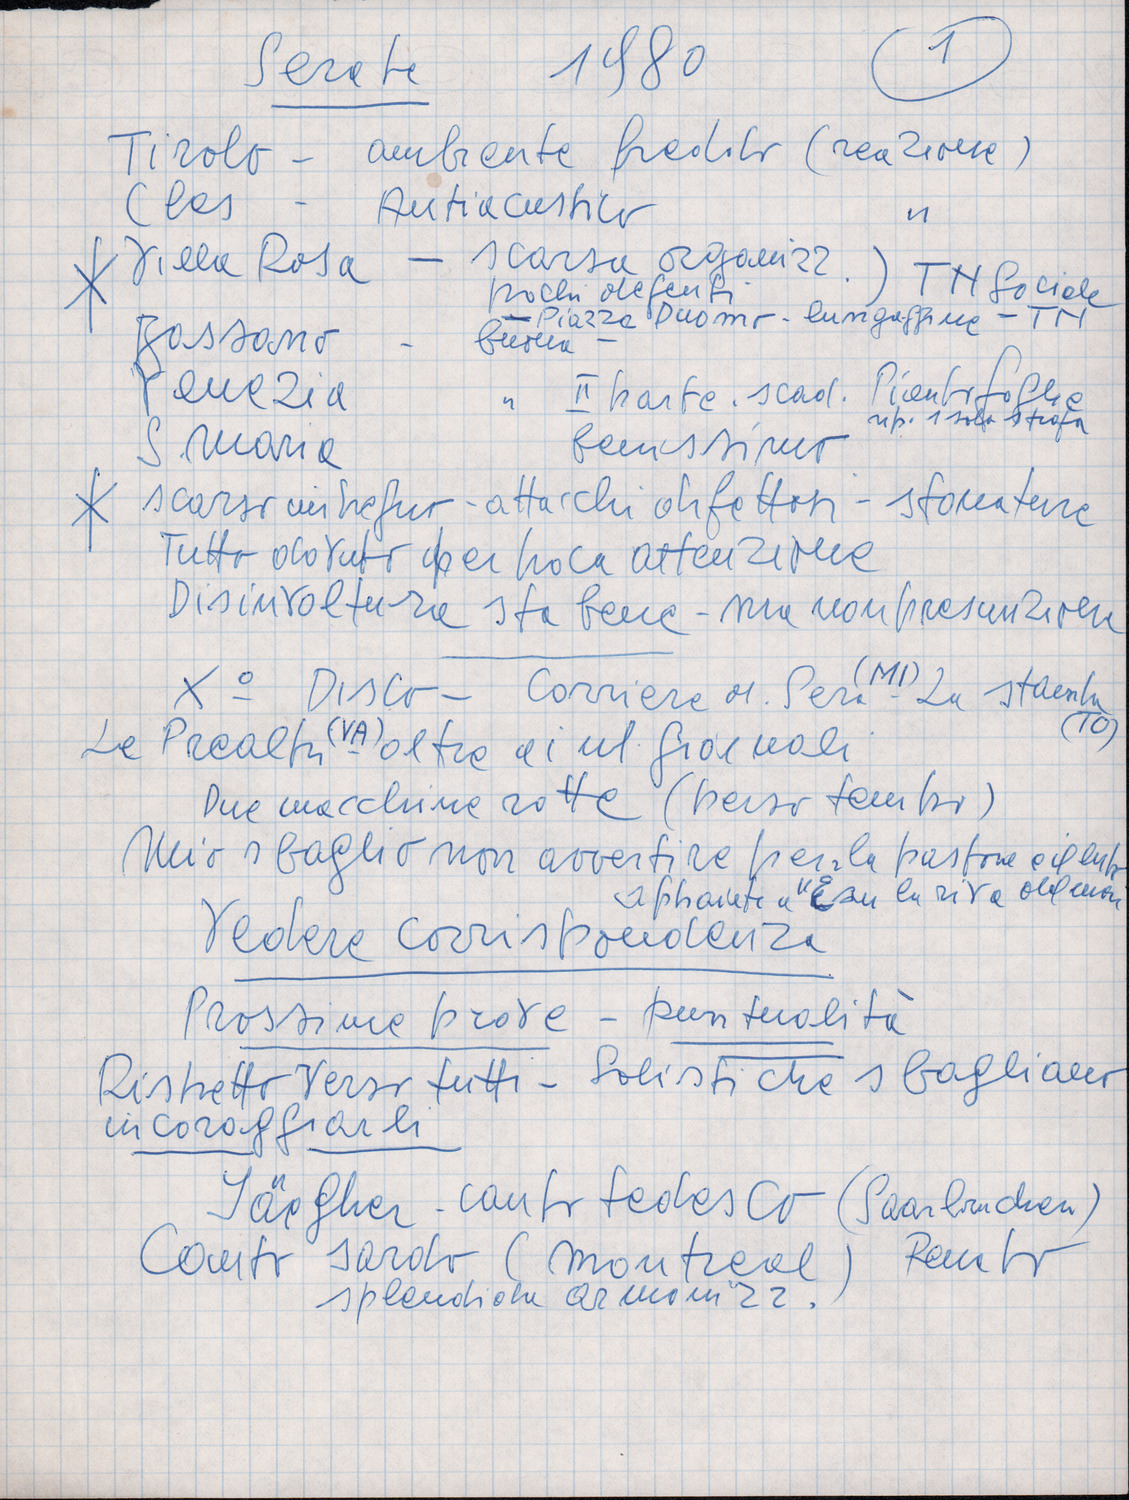 Serate 1980 1
Tirolo - ambiente freddo (reazione)
Cles - Antiacustico "
Villa Rosa - scarsa organizz. ) TN Sociale
pochi degenti
- Piazza Duomo - lungaggine - TN
Bassano - buona -
Venezia " II parte. scad. Pianto foglie
rip. 1 sola strofa
S. Maria benissimo
scarso impegno - attacchi difettosi - stonature
Tutto dovuto per poca attenzione
Disinvoltura sta bene - ma non presunzione
Xº Disco - Corriere d. Sera (MI) - La Stampa
(TO)
Le Prealpi (VA) oltre ai nl. giornali
Due macchine rotte (perso tempo)
Mio sbaglio non avvertire per la
"E su la riva del
Vedere corrispondenza
Prossime prove - puntualità
Rispetto verso tutti - Solisti che sbagliano
incoraggiarli
Jäegher - canto tedesco (Saarbrucken)
Canto sardo (Montreal) Renato
splendida armonizz.